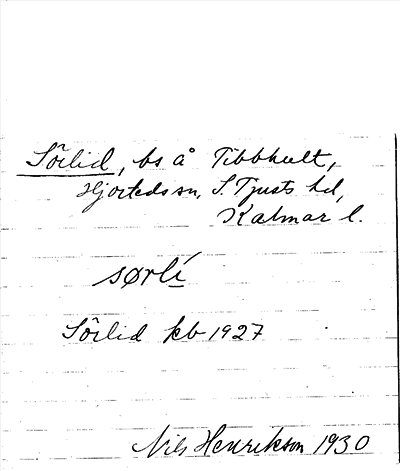 Sörlid, bs å Tibbhult,
Hjorteds sn, S. Tjusts hd,
Kalmar l.
sørlí
Sörlid kb 1927
Nils Henrikson 1930